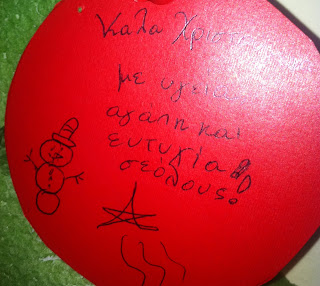 Καλα Χριστ
με υγεια
αγαπη και
ευτυχία
σεόλους.